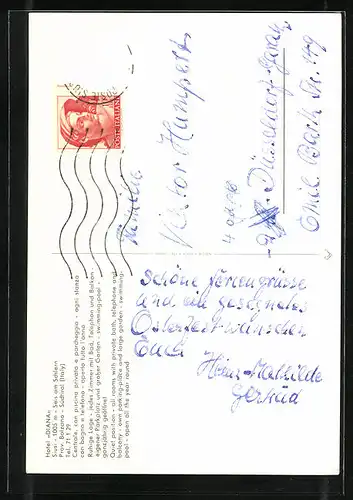 Hotel »DIANA«
Siusi - 1005 m - Seis am Schlern
Prov. Bolzano - Südtirol (Italy)
Tel. 71 1 29
Centrale, con piscina privata e parcheggio - ogni stanza
con bagno e telefono - aperto tutto l'anno
Ruhige Lage - jedes Zimmer mit Bad, Telephon und Balkon -
eigener Parkplatz und großer Garten - swimming-pool -
ganzjährig geöffnet
Quiet position - all rooms with private bath, telephone and
balcony - own parking-place and large garden - swimming-
pool - open all the year round
POSTE ITALIANE
Familie
Viktor Humpert
4
Düsseldorf-
Emil Barth Str. 149
Schöne Feriengrüsse
und ein gesegnetes
Osterfest wünschen
Euch
Heinz Mathilde
Gertrud